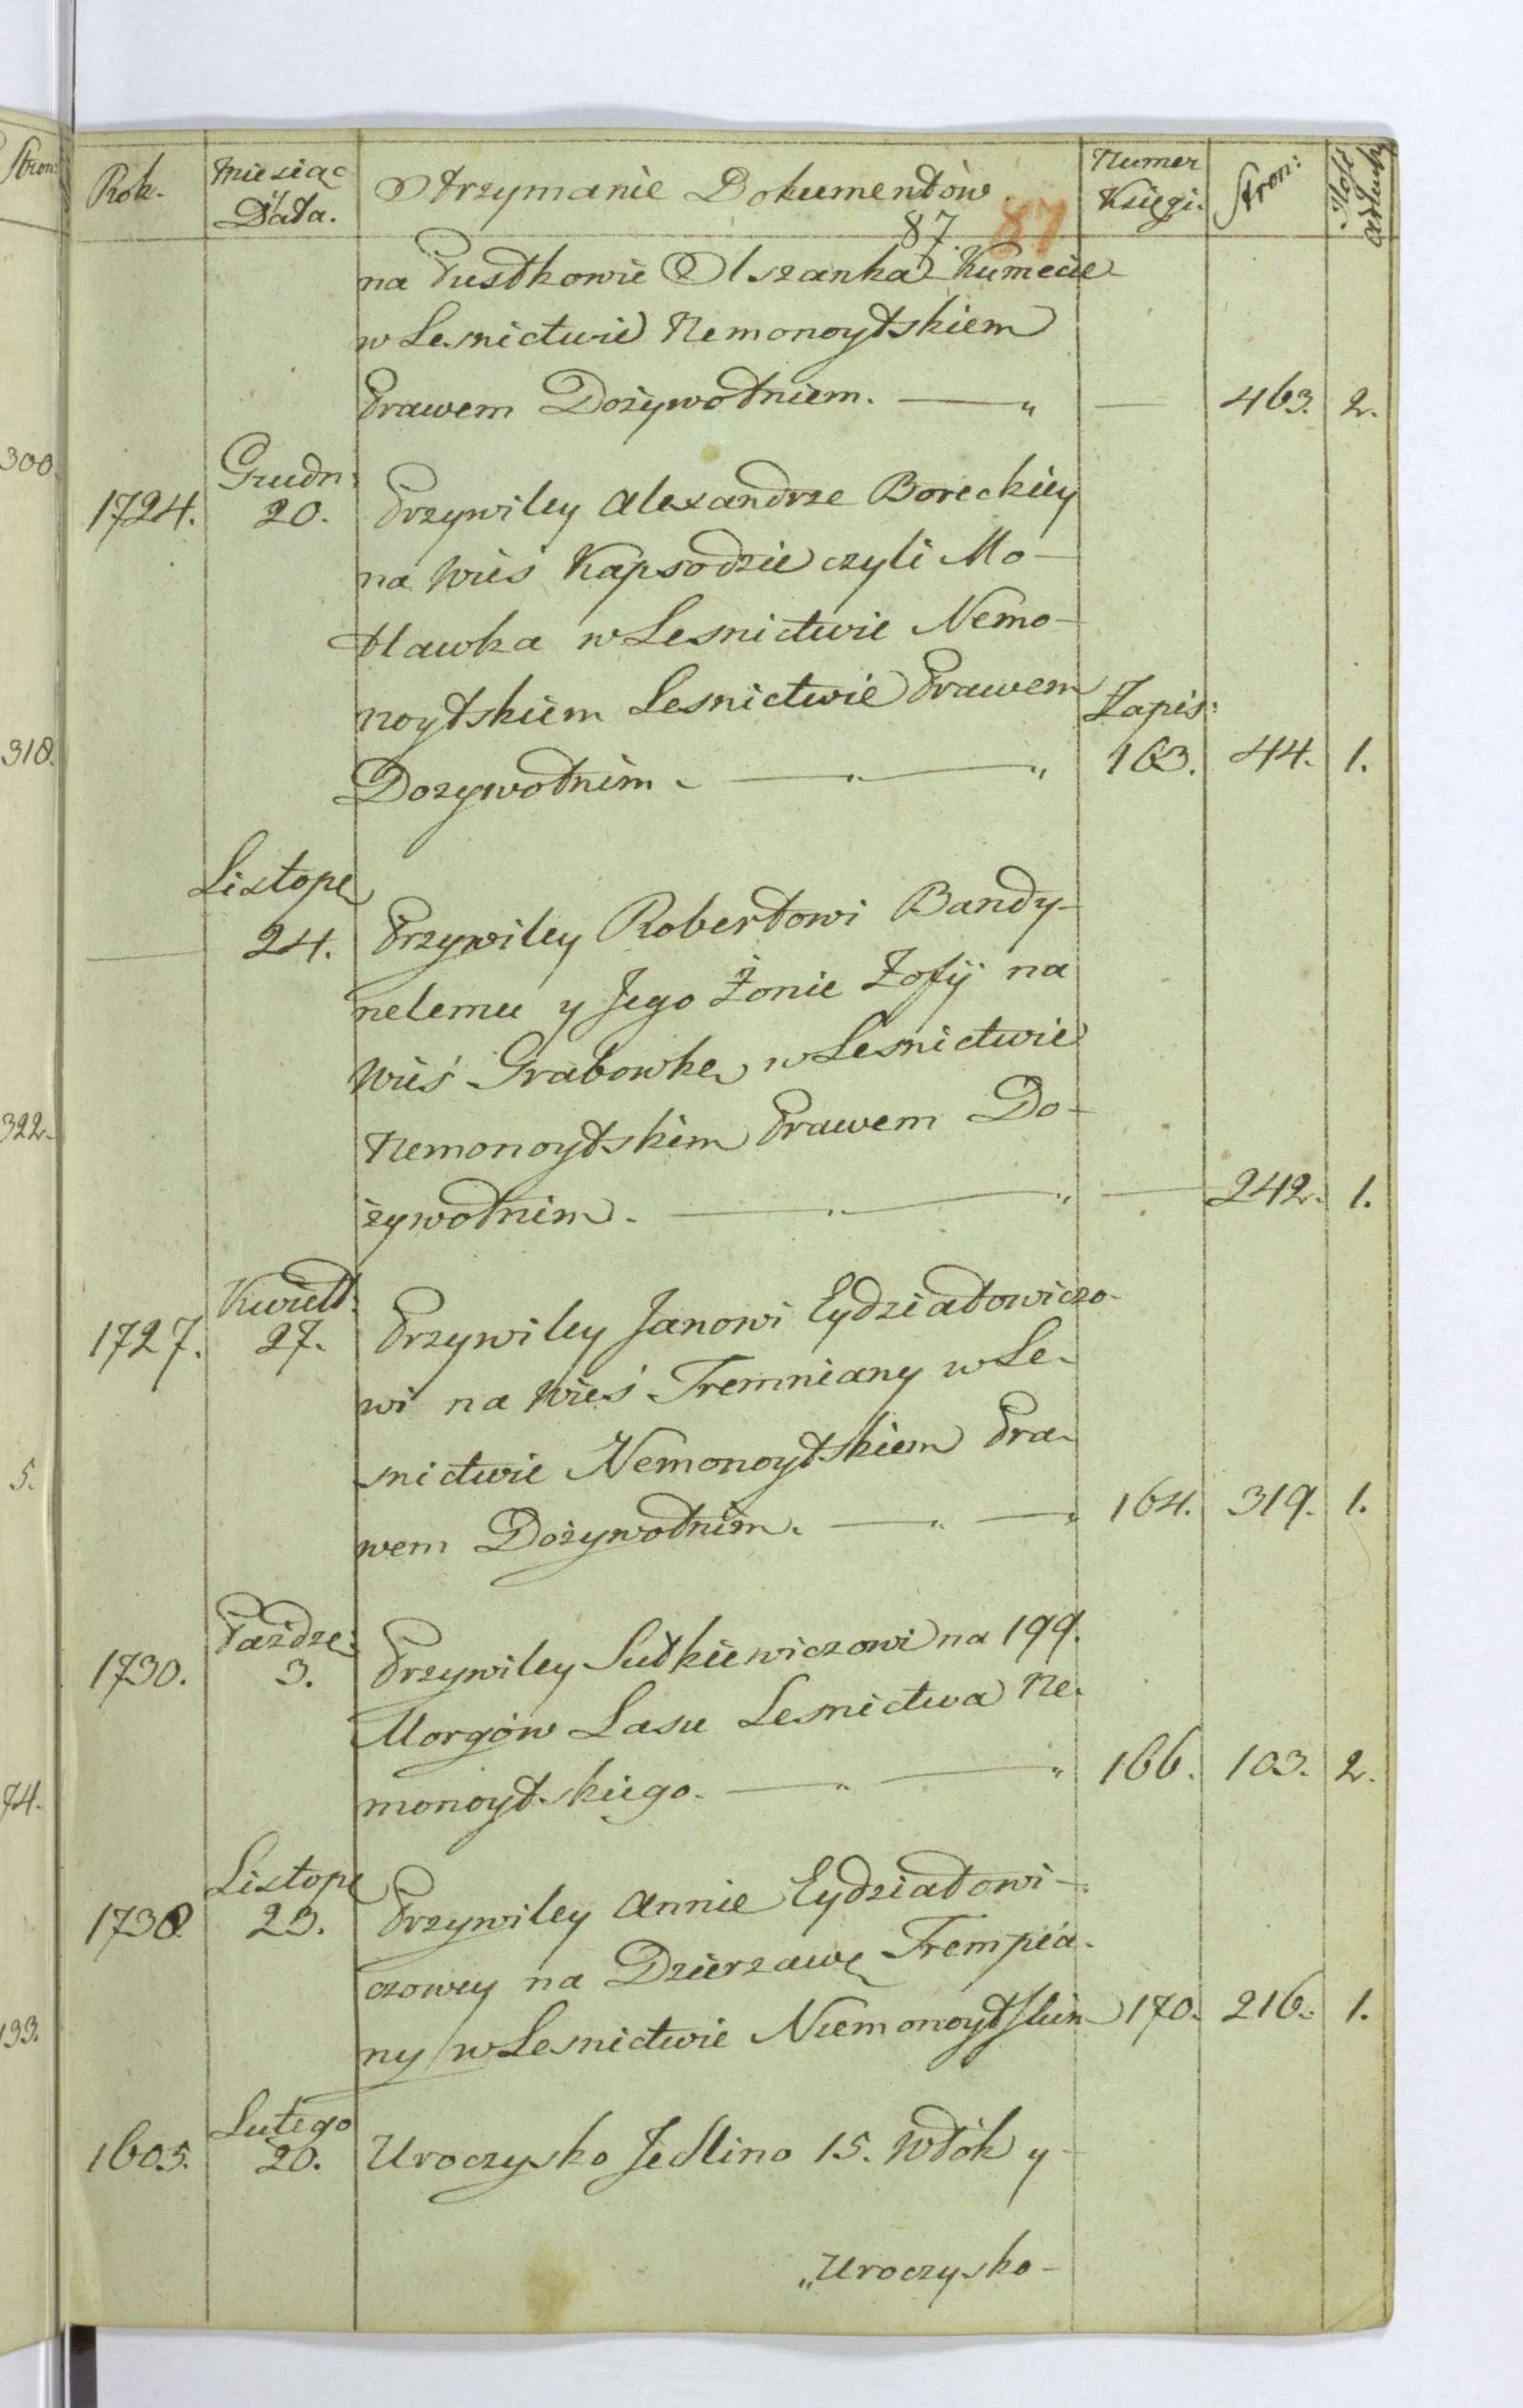 Stron:
300.
318.
322.
5.
74.
133.
Rok. Miesiąc y Data. Otrzymanie Dokumentów. Numer Księgi. Stron: Ilość
87. 87
na Pustkowie Olszanka Kumecie
w Lesnictwie Nemonoytskiem
Prawem Dożywotniem. — „ — 463. 2.
Grudn:
1724. 20. Przywiley Alexandrze Boreckiey
na Wieś Kapsodzie czyli Mo-
tławka w Lesnictwie Nemo-
noytskiem Lesnictwie Prawem Zapis:
Dozywotnim. — „ — „ 163. 44. 1.
Listope
— 24. Przywiley Robertowi Bandy-
nelemu y Jego Żonie Zofij na
Wieś Grabowke w Lesnictwie
Nemonoytskim Prawem Do-
żywotnim. — „ — „ — 242. 1.
Kwiet:
1727. 27. Przywiley Janowi Eydziatowiczo-
wi na Wieś Tremniany w Le-
snictwie Nemonoytskiem Pra-
wem Dożywotnim. — „ — „ 164. 319. 1.
Paździe:
1730. 3. Przywiley Sutkiewiczowi na 199.
Morgów Lasu Lesnictwa Ne-
monoytskiego. — „ — „ 166. 103. 2.
Listope
1738 23. Przywiley Annie Eydziatowi-
czowey na Dzierzawę Trempia-
ny w Lesnictwie Niemonoytskim 170. 216. 1.
Lutego
1605. 20. Uroczysko Jedlino 15. Włók y-
„Uroczysko-